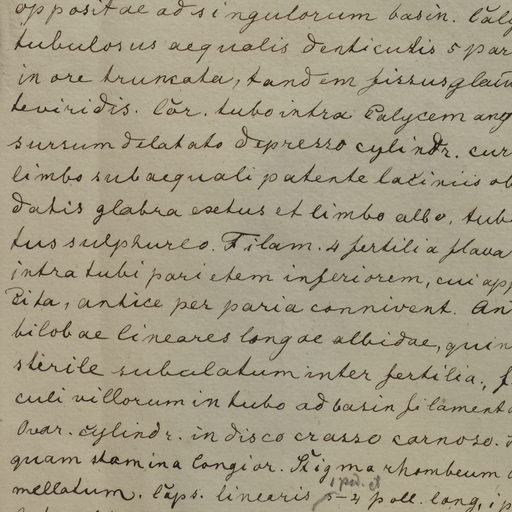 oppositae ad singulorum basin. Caly
tubulosus aequalis denticulis 5 par
in ore truncata, tandem fissus glau
teviridis. Cor. tubo intra Calycem ang
sursum dilatato depresso cylindr. cur
limbo subaequali patente laciniis ob
datis glabra extus et limbo albo, tub
tus sulphureo. Filam. 4 fertilia flava
intra tubi parietem inferiorem, cui app
cita, antice per paria connivent. An
bilobae lineares longae albidae, quin
sterile subulatum inter fertilia, f
culi villorum in tubo ad basin filament
Ovar. cylindr. in disco crasso carnoso.
quam stamina longior. Stigma rhombeum
mellatum. Caps. linearis 4 poll. long, 1 p